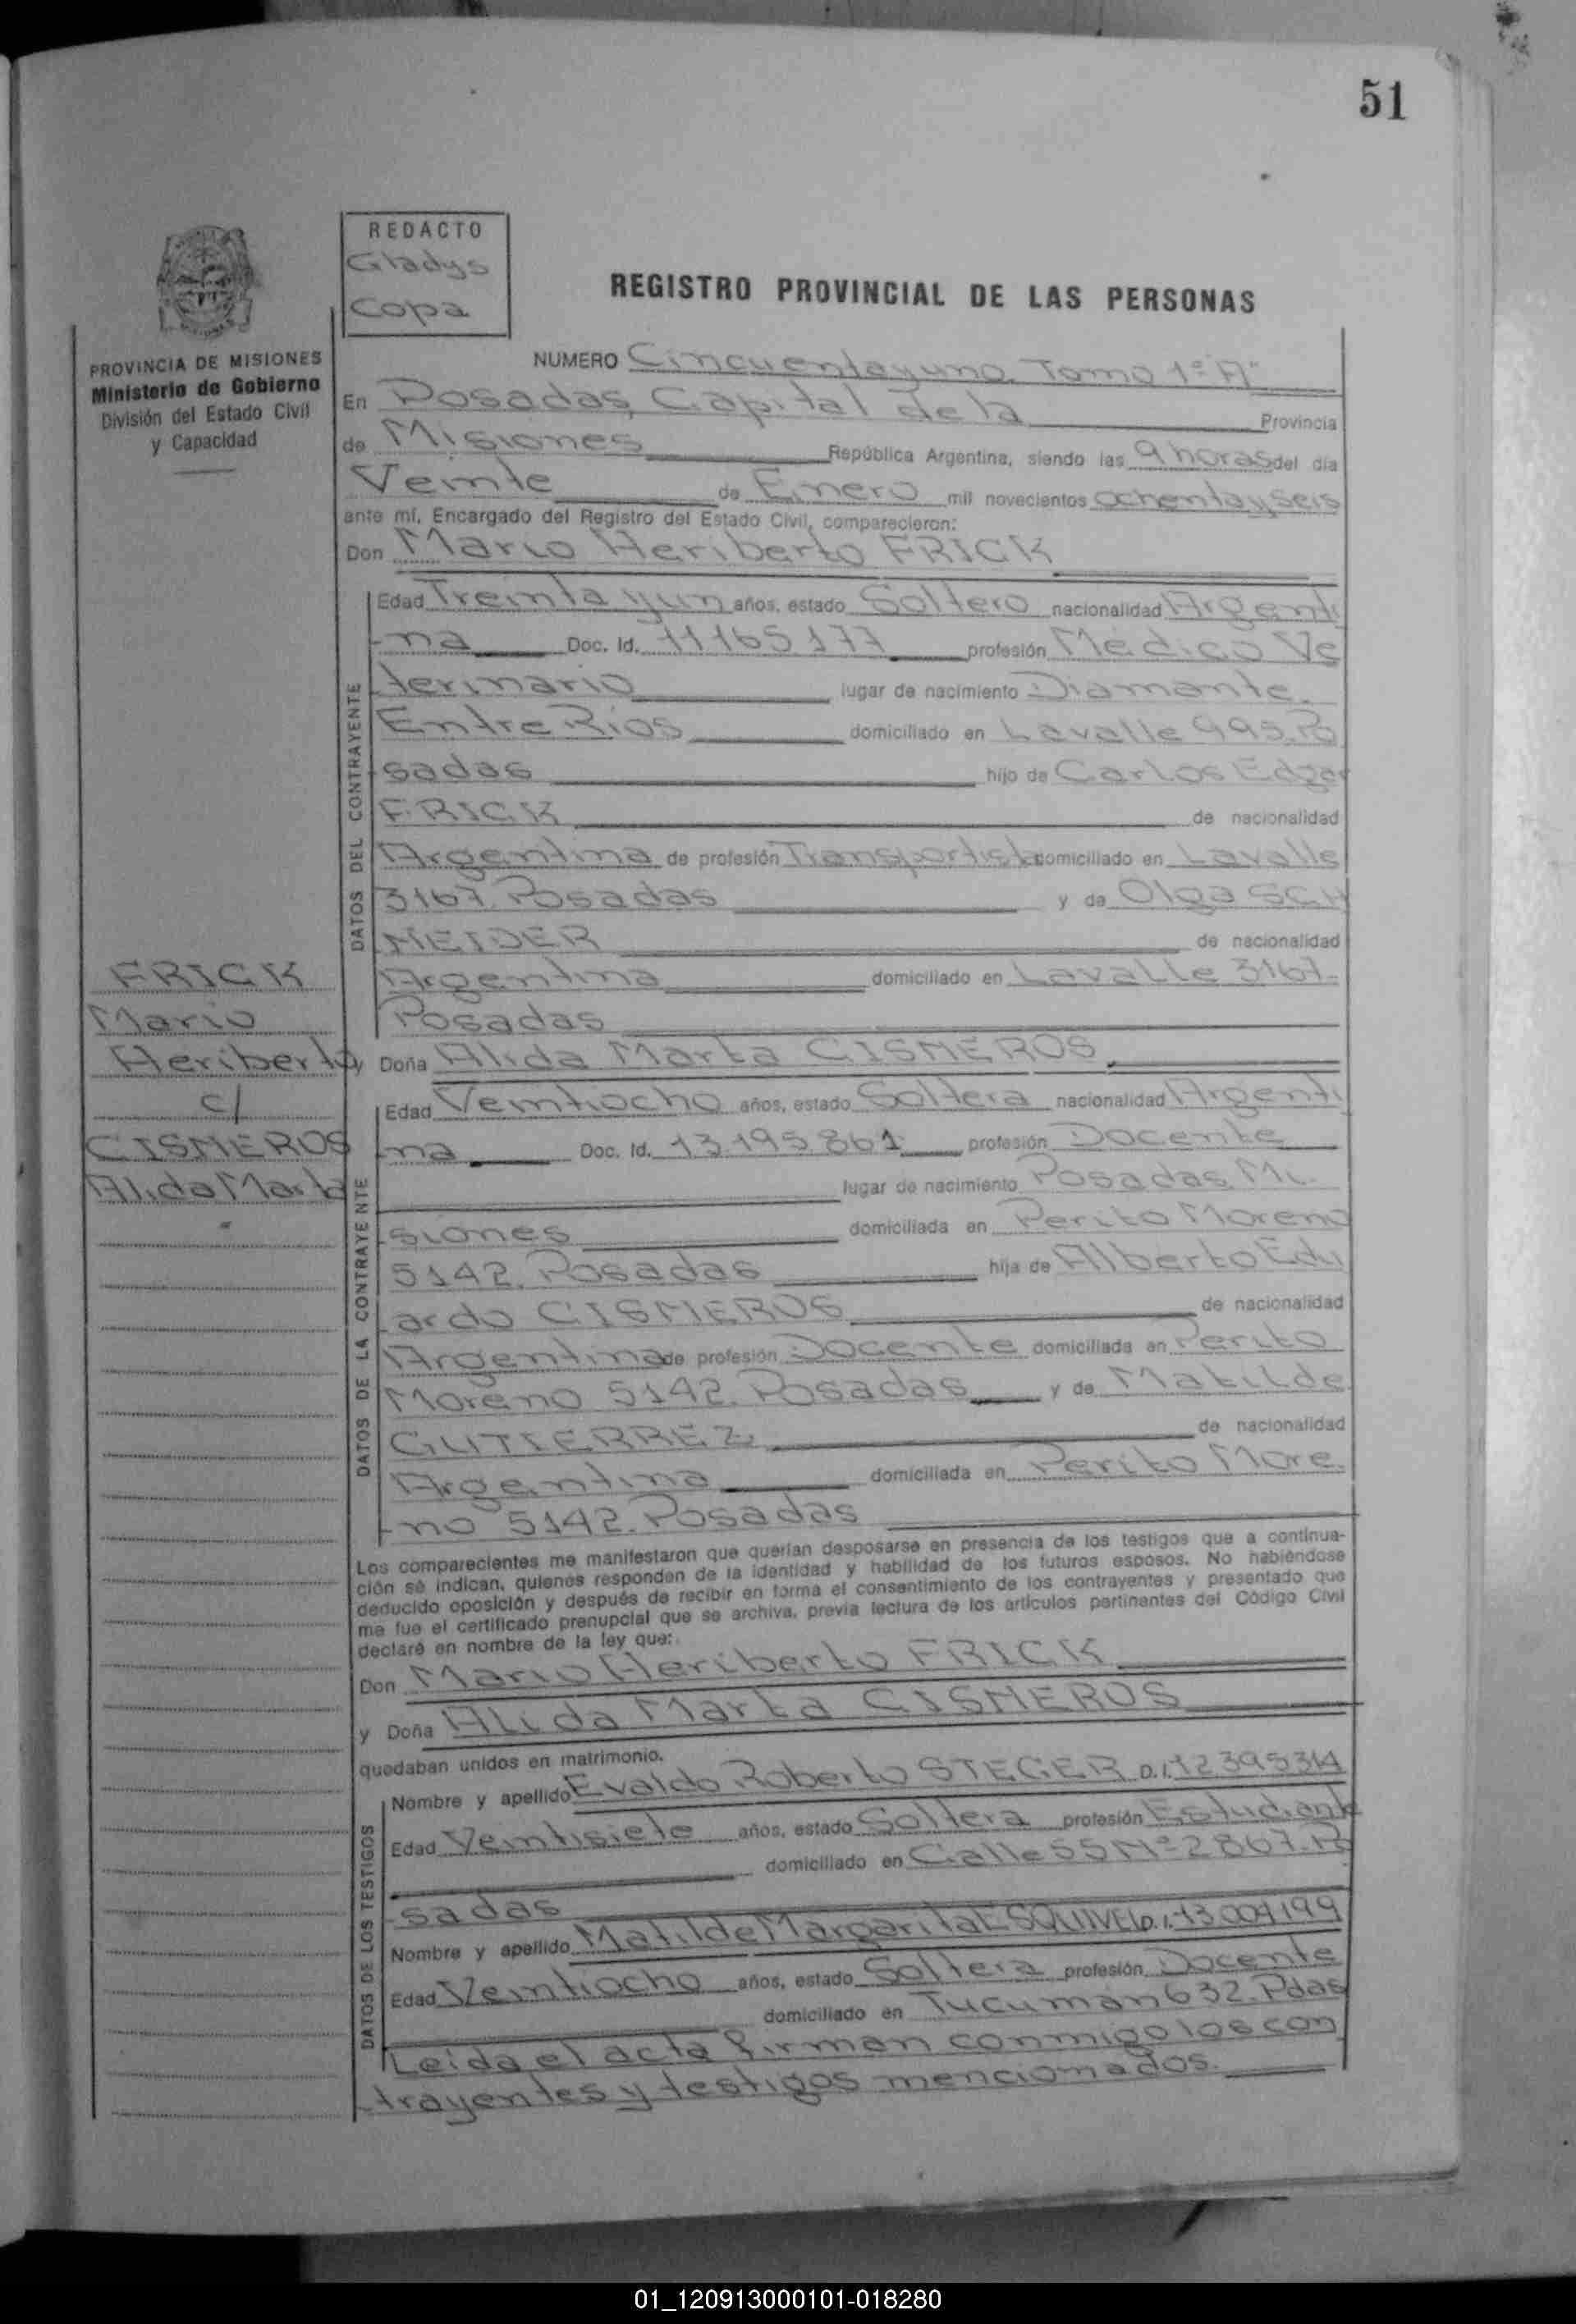 51
REDACTO
Gladys
Copa
REGISTRO PROVINCIAL DE LAS PERSONAS
PROVINCIA DE MISIONES
Ministerio de Gobierno
División del Estado Civil
y Capacidad
NUMERO Cincuenta y uno. Tomo 1º "A"
En Posadas, Capital de la Provincia
de Misiones República Argentina, siendo las 9 horas del día
Veinte de Enero mil novecientos ochenta y seis
ante mí, Encargado del Registro del Estado Civil, comparecieron:
Don Mario Heriberto FRICK
DATOS DEL CONTRAYENTE
Edad Treinta y un años, estado Soltero nacionalidad Argenti
na Doc. Id. 11165177 profesión Médico Ve
terinario lugar de nacimiento Diamante.
Entre Rios domiciliado en Lavalle 995. Po
sadas hijo de Carlos Edgar
FRICK de nacionalidad
Argentina de profesión Transportista domiciliado en Lavalle
3167. Posadas y de Olga SCH
NEIDER de nacionalidad
Argentina domiciliado en Lavalle 3167-
Posadas
FRICK
Mario
Heriberto
c/
CISNEROS
Alida Marta
y Doña Alida Marta CISNEROS
DATOS DE LA CONTRAYENTE
Edad Veintiocho años, estado Soltera nacionalidad Argenti
na Doc. Id. 13.195.861 profesión Docente
lugar de nacimiento Posadas. Mi
siones domiciliada en Perito Moreno
5142. Posadas hija de Alberto Edu
ardo CISNEROS de nacionalidad
Argentina de profesión Docente domiciliada en Perito
Moreno 5142. Posadas y de Matilde
GUTIERREZ de nacionalidad
Argentina domiciliada en Perito More
no 5142. Posadas
Los comparecientes me manifestaron que querían desposarse en presencia de los testigos que a continua-
ción se indican, quienes responden de la identidad y habilidad de los futuros esposos. No habiéndose
deducido oposición y después de recibir en forma el consentimiento de los contrayentes y presentado que
me fue el certificado prenupcial que se archiva, previa lectura de los artículos pertinentes del Código Civil
declaré en nombre de la ley que:
Don Mario Heriberto FRICK
y Doña Alida Marta CISNEROS
quedaban unidos en matrimonio.
DATOS DE LOS TESTIGOS
Nombre y apellido Evaldo Roberto STEGER D.I. 12395314
Edad Veintisiete años, estado Soltera profesión Estudiante
domiciliado en Calle 55 Nº 2867. Po
sadas
Nombre y apellido Matilde Margarita ESQUIVEL D.I. 13.004199
Edad Veintiocho años, estado Soltera profesión Docente
domiciliado en Tucumán 632. Pdas
Leida el acta firman conmigo los con
trayentes y testigos mencionados.
01_120913000101-018280